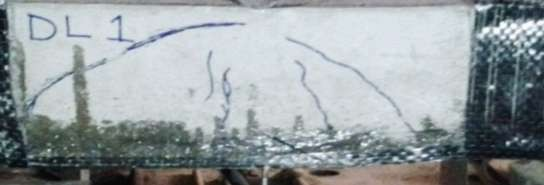 DL 1